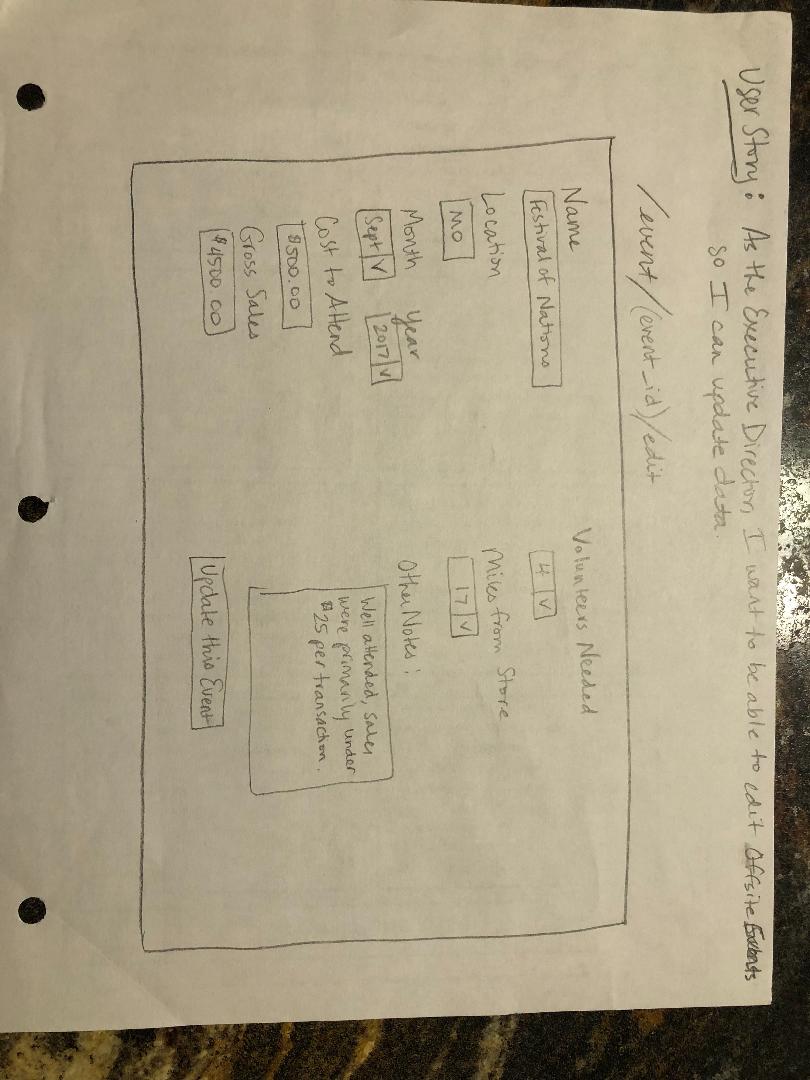 User Story: As the Executive Director, I want to be able to edit Offsite Events
so I can update data.
/event/(event_id)/edit
Name
Festival of Nations
Location
MO
Month Year
Sept V 2017 V
Cost to Attend
$500.00
Gross Sales
$4500.00
Volunteers Needed
4 V
Miles from Store
17 V
Other Notes:
Well attended, sales
were primarily under
$25 per transaction.
Update this Event